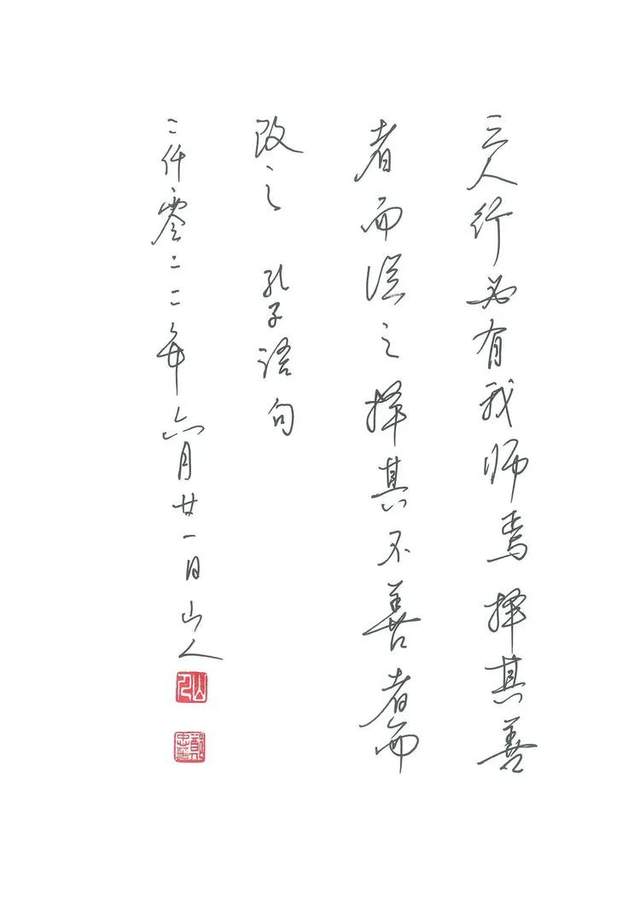 三人行必有我师焉择其善
者而從之择其不善者而
改之 孔子语句
二仟零二二年六月廿一日山人
山人